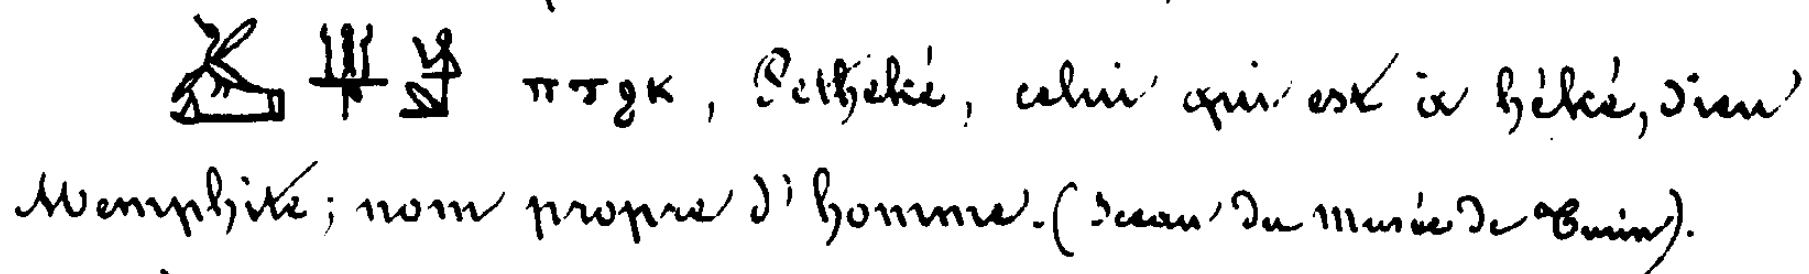 πτϩκ, Pethéké, celui qui est à héké, dieu
Memphite; nom propre d'homme. (Sceau du Musée de Turin).